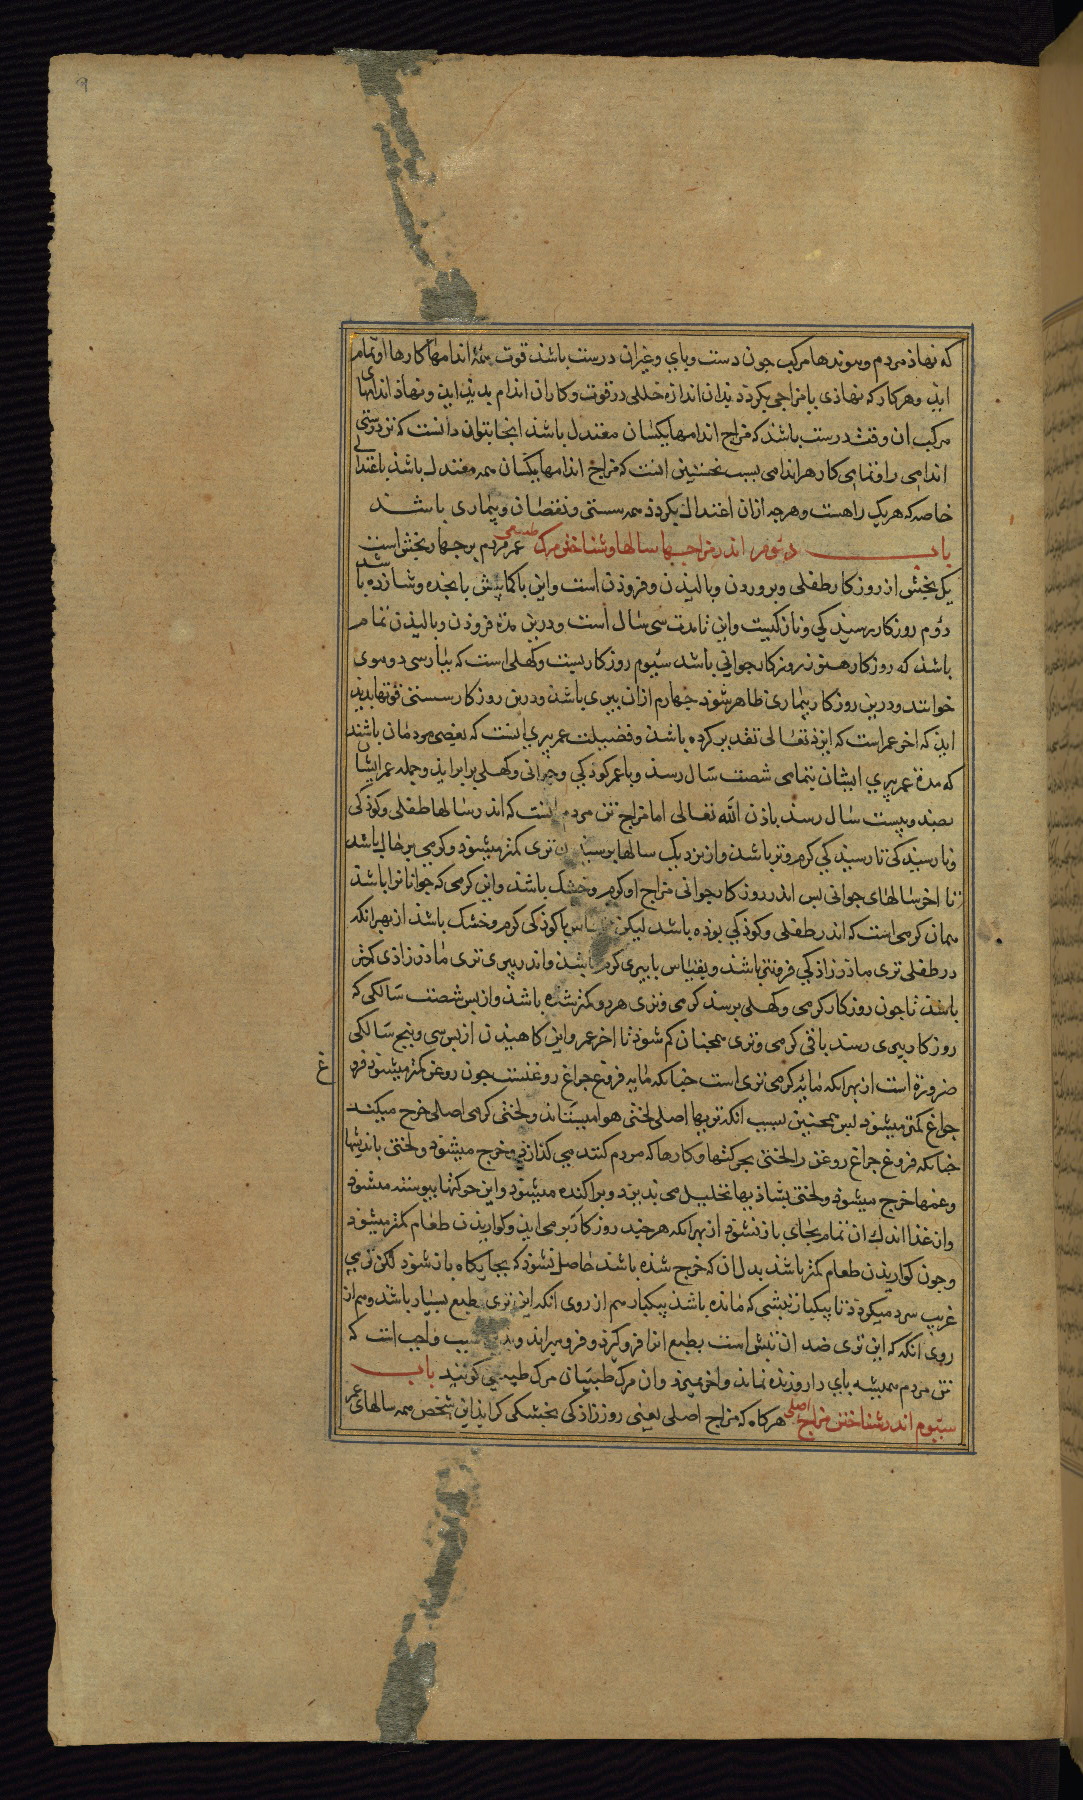 که نهاذ مردم و پیوندها مرکب جون دست و بای و غیر ان درست باشذ قوت همۀ اندامها و کارها او تمام
ایذ و هر کار که نهاذی یا مزاجی بکردذ بذان اندازه خللی در قوت و کار ان اندام بدیذ ایذ و نهاذ اندامهای
مرکب ان وقت درست باشذ که مزاج اندامها یکسان معتدل باشذ ازینجا بتوان دانست که تن درستی
اندامی را و تمامی کار هر اندامی سبب نخستین انست که مزاج اندامها یکسان همه معتدل باشذ باعتدالی
خاصه که هر یک راهست و هرجه از ان اعتدال بکردذ همه سستی و نقصان و بیماری باشذ
باب دوم اندر مزاجها سالها و شناختن مرک طبیعی عمر مردم بر جهار بخش است
یک بخش از روزکار طفلی و پروردن و بالیذن و فزوذن است و این یا کمابیش بانجده و شانزده باشد
دوم روزکار رسیذکی و نازکیست و این تا مدت سی سال است و درین مدة فزوذن و بالیذن تمام
باشذ که روزکار هنوز روزکار جوانی باشد سیوم روزکار بیست و کهلی است که بپارسی دو موی
خوانند و درین روزکار بیماری ظاهر شوذ جهارم از ان پیری باشذ و درین روزکار سستی قوتها بدیذ
ایذ که اخر عمر است که ایزذ تعالی تقدیر کرده باشذ و فضیلت عمر پیری انست که بعضی مردمان باشند
که مدة عمر پیری ایشان بتمامی شصت سال رسذ و با عمر کوذکی و جوانی و کهلی برابر ایذ و جمله عمر ایشان
بصذ و بیست سال رسذ باذن الله تعالی اما مزاج تن مردم انست که اندر سالها طفلی و کوذکی
و نارسیذکی تا رسیذکی کرم و تر باشذ و از نزدیک سالها برسیذن تری کمتر میشوذ و کرمی بر حال باشد
تا اخر سالهای جوانی بس اندر روزکار جوانی مزاج او کرم و خشک باشذ و این کرمی که جوانانرا باشذ
همان کرمی است که اندر طفلی و کوذکی بوذه باشذ لیکن با کوذکی کرم و خشک باشذ از بهر انکه
در طفلی تری ماذرزاذکی فزونتر باشذ و بقیاس با پیری کرم باشذ و اندر پیری تری ماذرزاذی کمتر
باشذ تا جون روزکار کرمی و کهلی برسذ کرمی و تری هر دو کمتر شذه باشذ و از بس شصت سالکی که
روزکار پیری رسذ باقی کرمی و تری همجنان کم شوذ تا اخر عمر و این کاهیذن از بس سی و پنج سالکی
ضرورة است از بهر انکه مایۀ کرمی تری است جنانکه مایه فروغ جراغ روغنست جون روغن کمتر میشوذ فروغ
جراغ کمتر میشوذ بس همجنین بسبب انکه تریها اصلی لختی هوا میستاند و لختی کرمی اصلی خرج میکند
جنانکه فروغ جراغ روغن را لختی بحرکتها و کارها که مردم کنند می کذازد و خرج میشوذ و لختی باندیشها
و غمها خرج میشوذ و لختی بشاذیها تحلیل می بذیرذ و براکنده میشوذ و این حرکتها بیوسته میشوذ
و ان غذا اندک ان تمام بجای باز نشوذ از بهر انکه هرجند روزکار بر می ایذ و کواریذن طعام کمتر میشوذ
و جون کواریذن طعام کمتر باشذ بدل ان که خرج شذه باشذ حاصل نشوذ که بجایکاه باز شوذ لکن تری
غریب سرد میکردذ تا یکبار زیشی که مانده باشذ یکبار هم از روی انکه این تری بطبع بسیار باشذ و هم از
روی انکه که این تری ضد ان تبش است بطبع انرا فرو کیرذ و فرو میراند و بدین سبب واجب است که
تن مردم همیشه بای دار و زنده نماند و اخر بمیرذ و ان مرک طبیبان مرک طبیعی کویند باب
سیوم اندر شناختن مزاج اصلی هرکاه که مزاج اصلی یعنی روز زاذکی بخشکی کرایذ این شخص همه سالهای عمر
غ